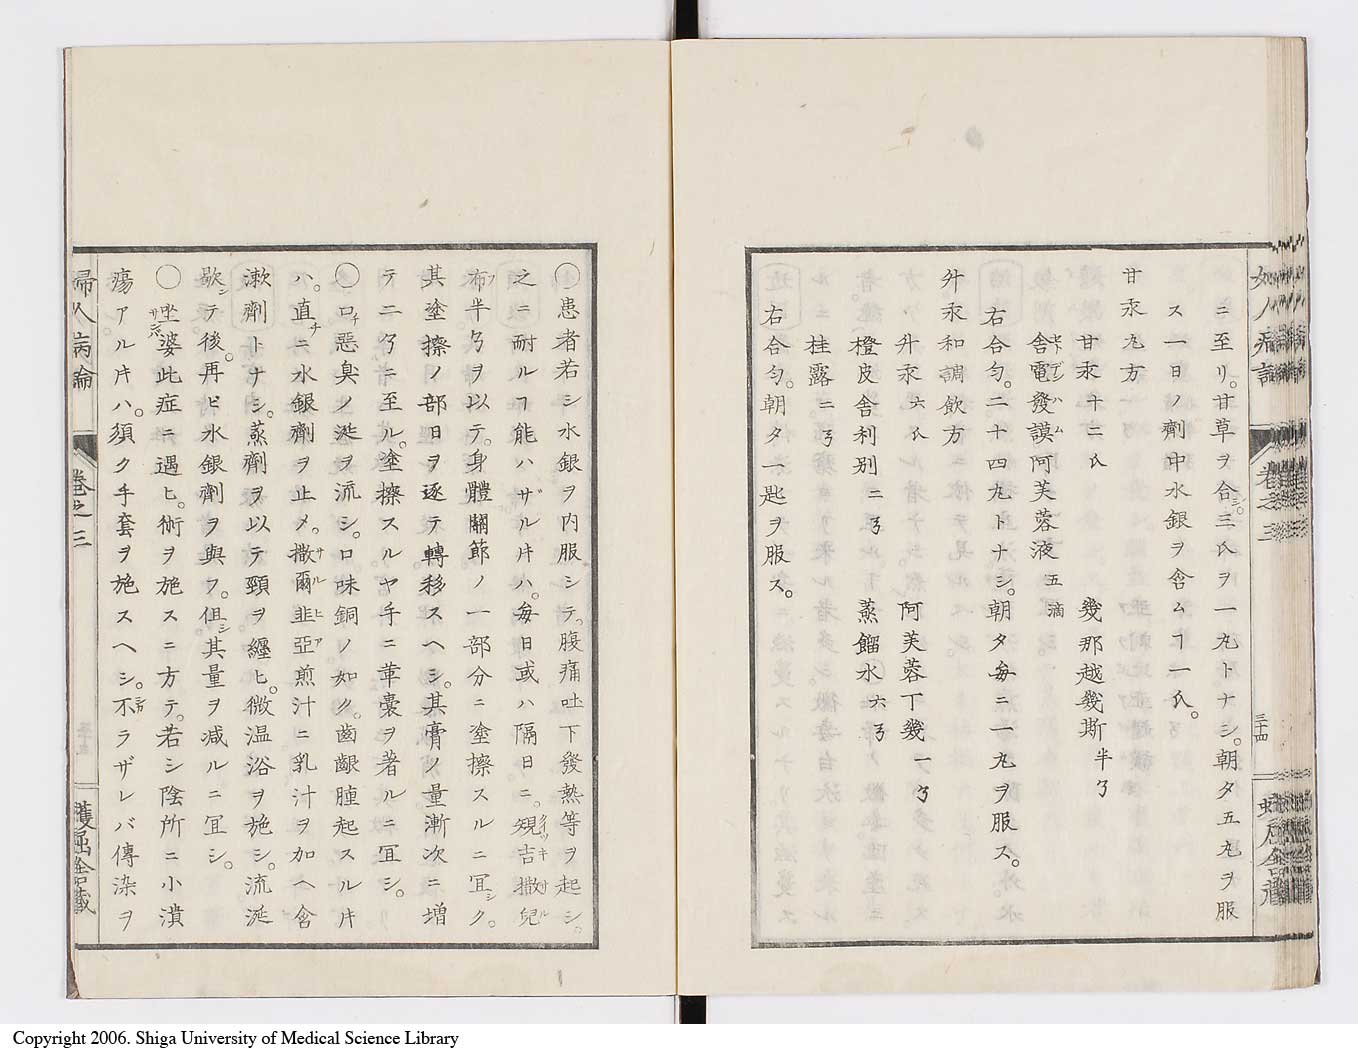 ニ至リ。甘草ヲ合シ。三氏ヲ一丸トナシ。朝夕五丸ヲ服
ス一日ノ劑中水銀ヲ含ムヿ一氏。
甘汞丸方
甘汞十二氏　幾那越幾斯半〻
舎電發謨阿芙蓉液五滴
右合匀。二十四丸トナシ。朝夕毎ニ一丸ヲ服ス。
升汞和調飲方
升汞六氏　阿芙蓉丁幾一〻
橙皮舎利別二〻　蒸餾水六〻
桂露二〻
右合匀。朝夕一匙ヲ服ス。
婦人病論
卷之三
三十四
〇患者若シ水銀ヲ内服シテ。腹痛吐下發熱等ヲ起シ。
之ニ耐ルヿ能ハザル片ハ。毎日或ハ隔日ニ。規吉撒兒
布半〻ヲ以テ。身體關節ノ一部分ニ塗擦スルニ冝シク。
其塗擦ノ部日ヲ逐テ轉移スヘシ。其膏ノ量漸次ニ增
テ二〻ニ至ル。塗擦スルヤ手ニ革囊ヲ著ルニ冝シ。
〇口チ惡臭ノ涎ヲ流シ。口味銅ノ如ク。齒齦腫起スル片
ハ。直チニ水銀劑ヲ止メ。撒爾韭亞煎汁ニ乳汁ヲ加ヘ含
漱劑トナシ。蒸劑ヲ以テ頸ヲ纏ヒ。微温浴ヲ施シ。流涎
歇シテ後。再ビ水銀劑ヲ與フ。但シ其量ヲ減ルニ冝シ。
〇坐婆此症ニ遇ヒ。術ヲ施スニ方テ。若シ陰所ニ小潰
瘍アル片ハ。須ク手套ヲ施スヘシ。不ラザレバ傳染ヲ
婦人病論
卷之三
Copyright 2006. Shiga University of Medical Science Library